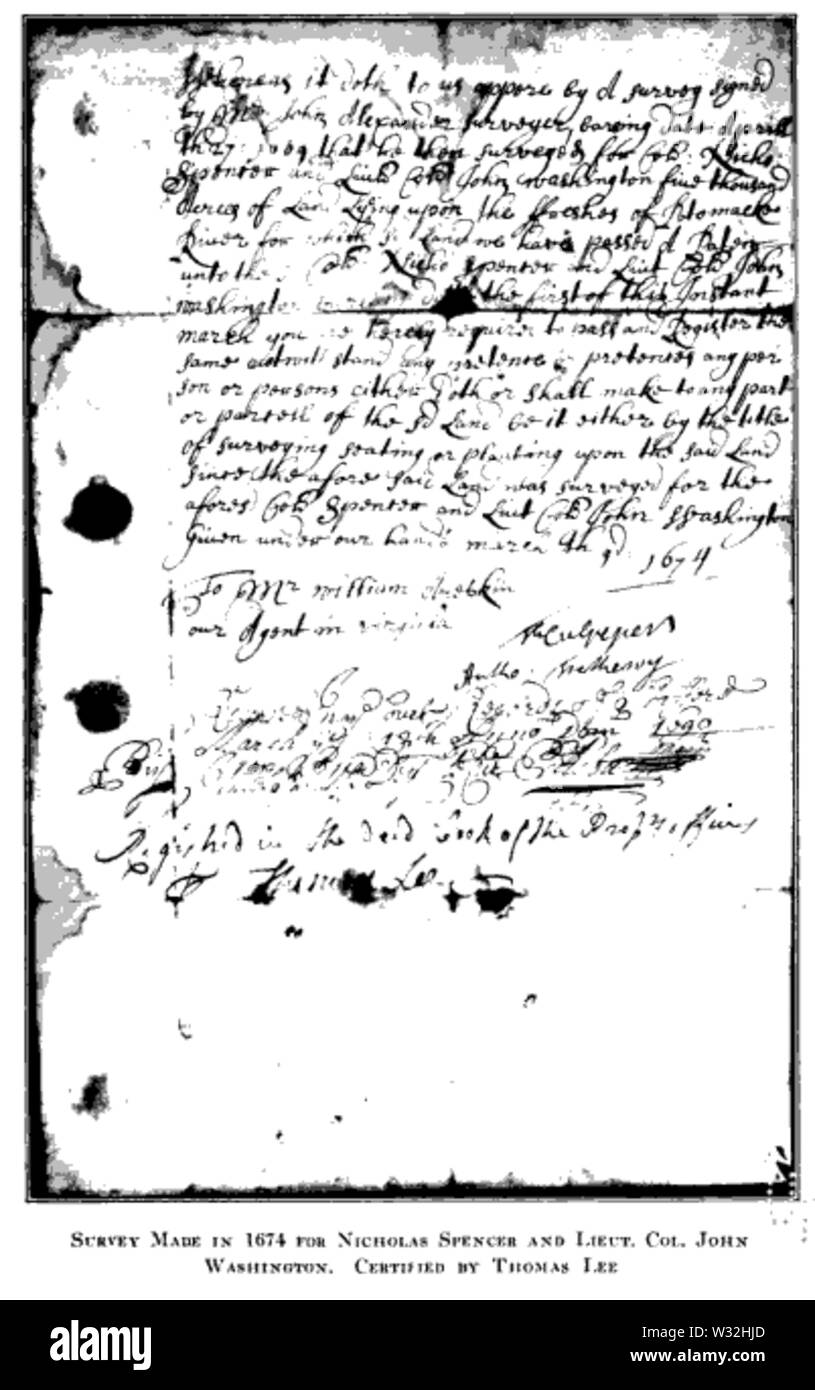 Whereas it doth to us appere by A survey signed
by Mr John Alexander surveyer bareing date Aprill
th 27: 1669 that he then surveyed for Coll: Nicho:
Spencer and Liut Coll John Washington five thousand
Acres of Land Lying upon the ffreshes of Potomacke
River for which sd Land we have passed A Paten
unto the Coll Nicho Spencer and Liut Coll John
Washington the first of this Instant
march you are hereby required to pass and Register the
same notwithstand any pretence or pretences any per
son or persons either doth or shall make to any part
or parcell of the sd Land be it either by the title
of surveying seating or planting upon the said Land
since the afore said Land was surveyed for the
aforesd Coll Spencer and Liut Coll John Washington
Given under our hands march th 1674
To Mr William
our Agent in virginia
Tho Culpeper
Antho.
March 18th 1690
Registred in the dead Book of the Proprs office
Thomas Lee
SURVEY MADE IN 1674 FOR NICHOLAS SPENCER AND LIEUT. COL. JOHN
WASHINGTON. CERTIFIED BY THOMAS LEE
alamy
Image ID: W32HJD
www.alamy.com